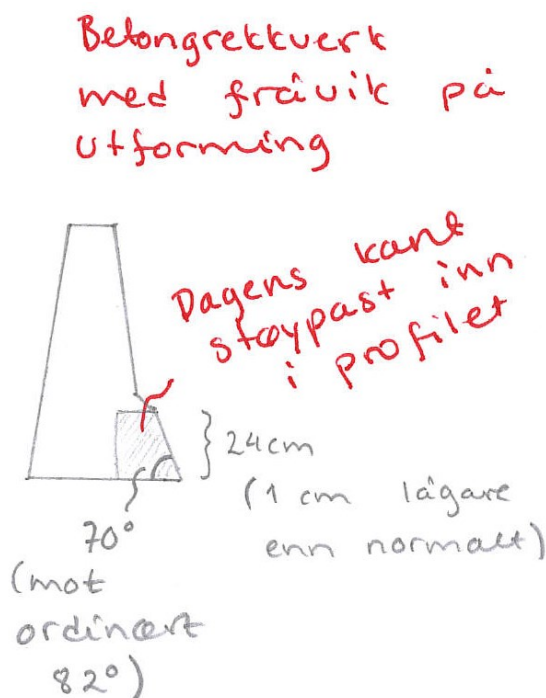 Betongrekkverk
med fråvik på
utforming
Dagens kant
støypast inn
i profilet
24cm
(1 cm lågare
enn normalt)
70°
(mot
ordinært
82°)